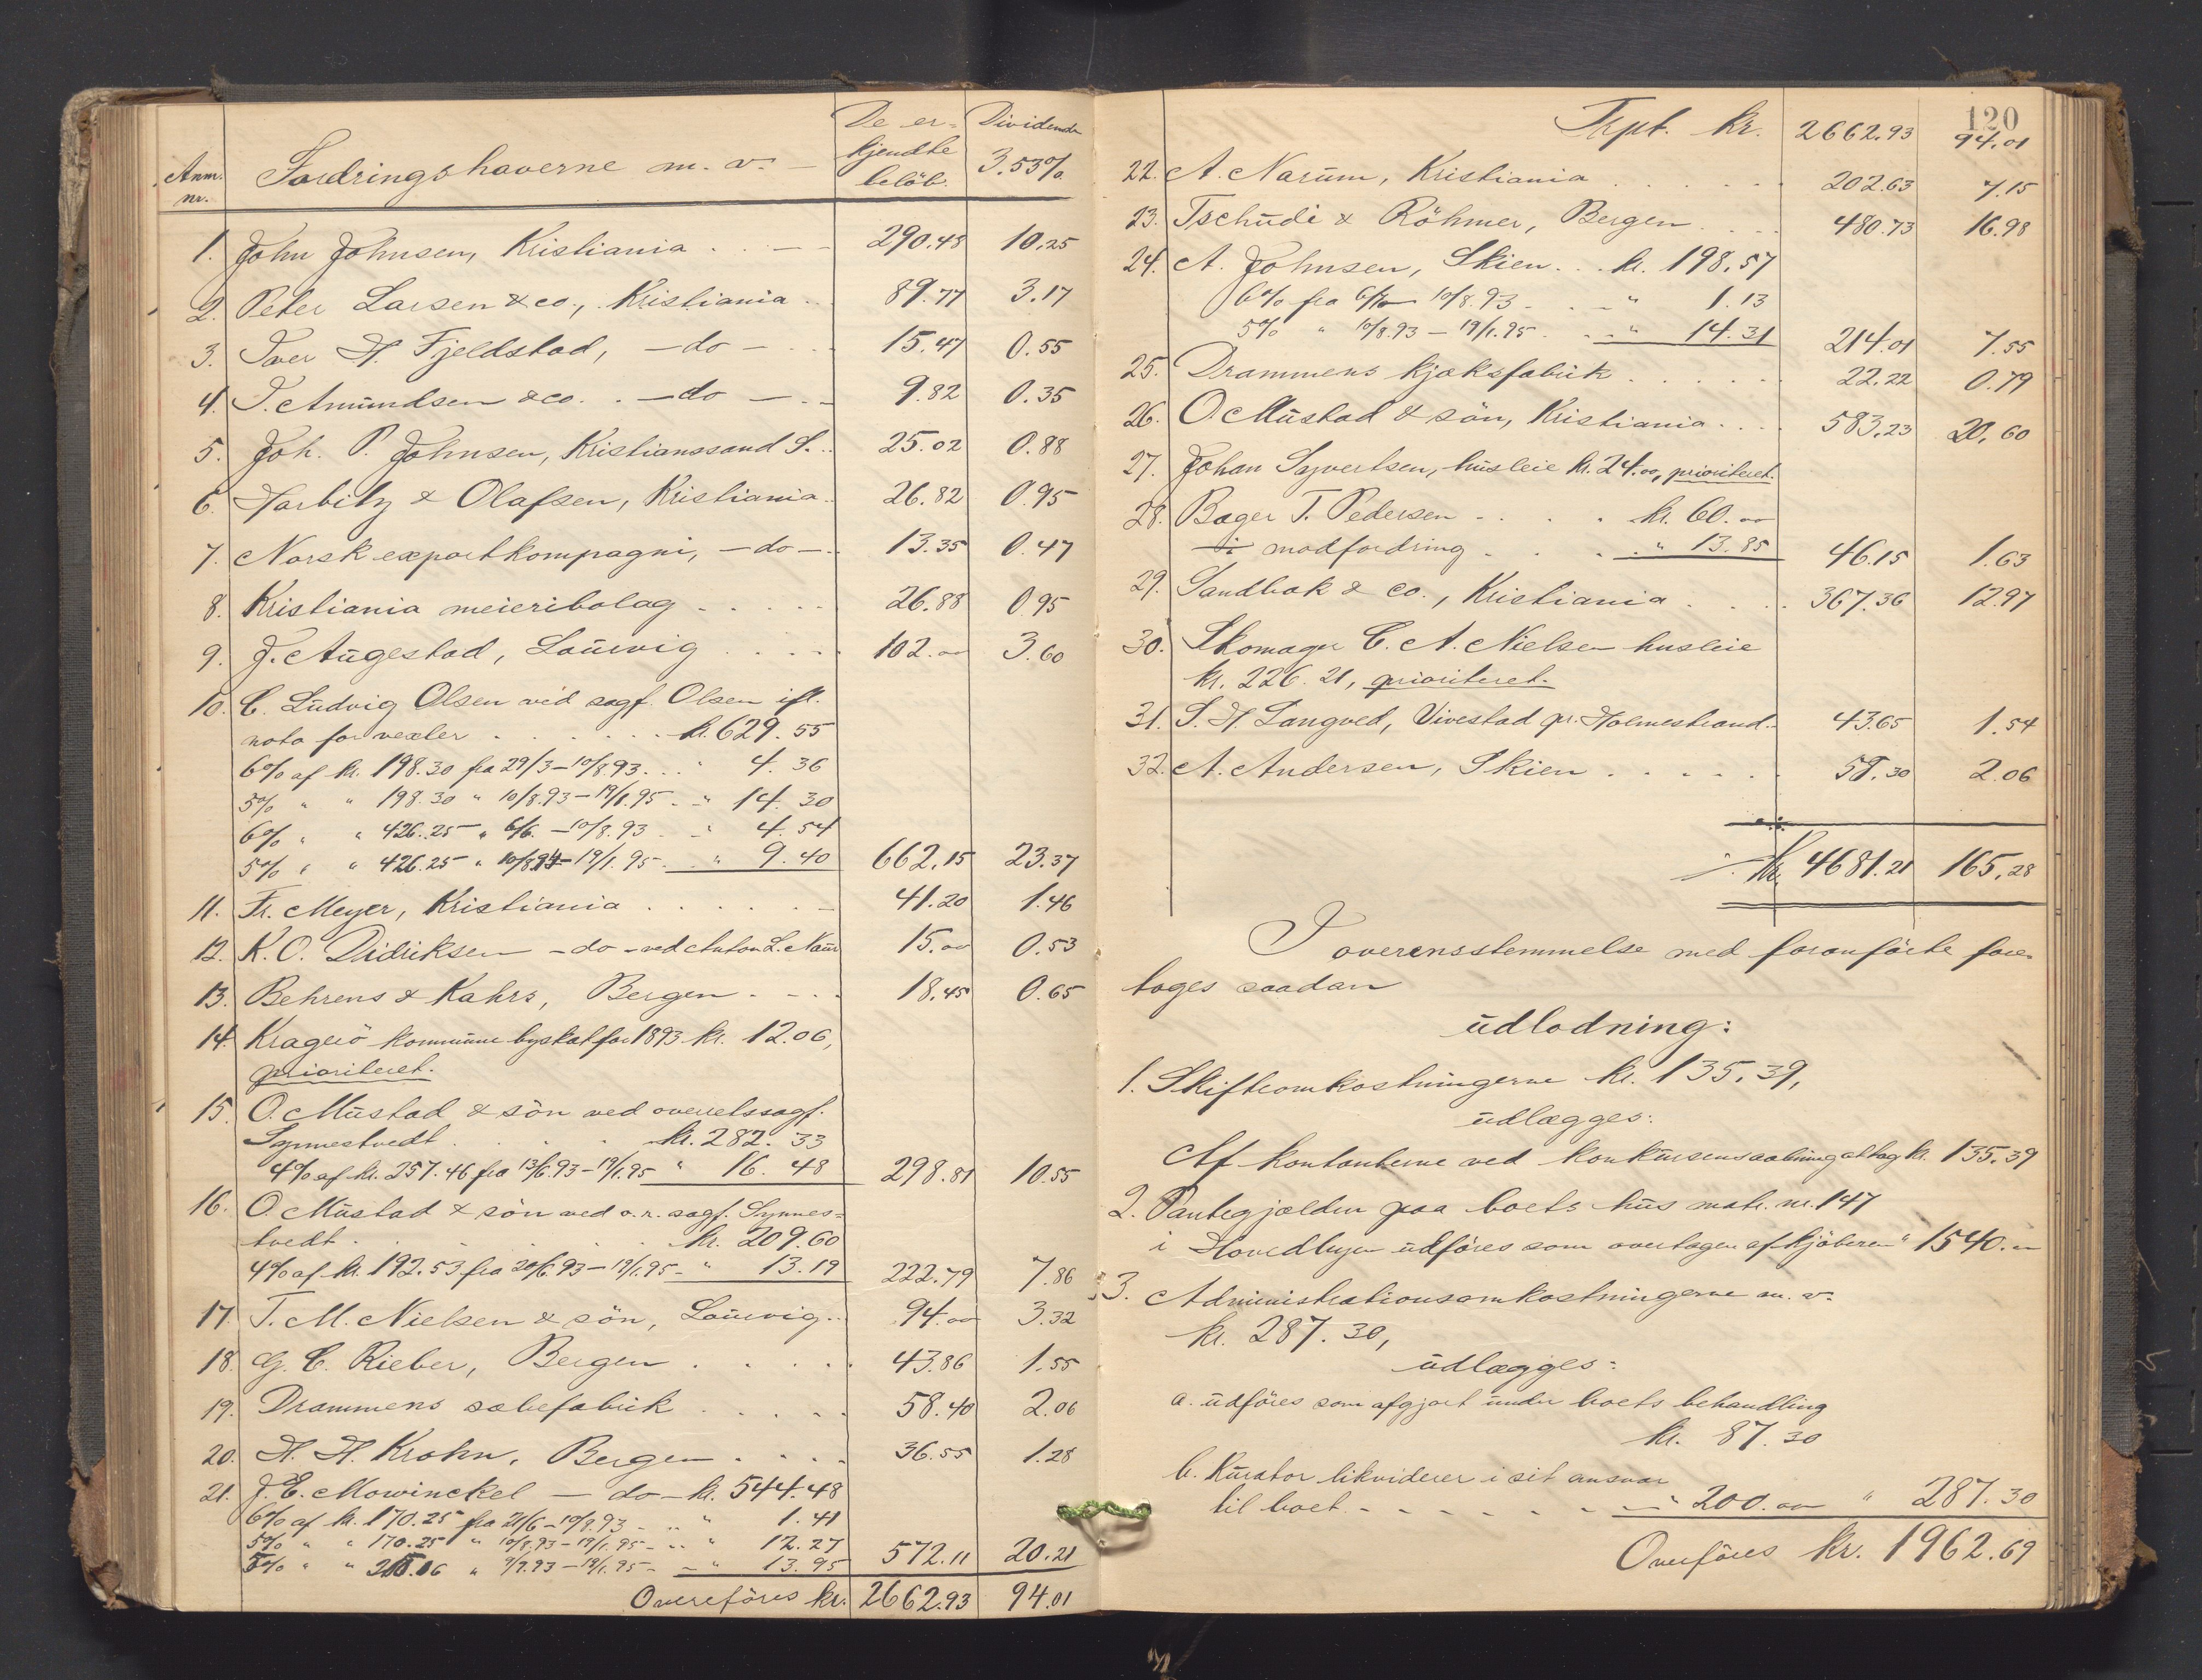 Anm. nr. Fordringshaverne m. v. De er= kjendte beløb. Dividende 3.53%
1. John Johnsen, Kristiania 290.48 10.25
2. Peter Larsen & co., Kristiania 89.77 3.17
3. Iver H. Fjeldstad, -do- 15.47 0.55
4. T. Amundsen & co. -do- 9.82 0.35
5. Joh. P. Johnsen, Kristianssand S. 25.02 0.88
6. Harbitz & Olafsen, Kristiania 26.82 0.95
7. Norsk exportkompagni, -do- 13.35 0.47
8. Kristiania meieribolag 26.88 0.95
9. J. Augestad, Laurvig 102.00 3.60
10. C. Ludvig Olsen ved sagf. Olsen ifl.
nota for vexler kr. 629.55
6% af kr. 198.30 fra 29/3-10/8.93 " 4.36
5% " " 198.30 " 10/8.93-19/1.95 " 14.30
6% " " 426.25 " 6/6.-10/8.93 " 4.54
5% " " 426.25 " 10/8.94-19/1.95 " 9.40 662.15 23.37
11. Fr. Meyer, Kristiania 41.20 1.46
12. K. O. Didriksen -do- ved Anton L. 15.00 0.53
13. Behrens & Kahrs, Bergen 18.45 0.65
14. Kragerö kommune byskat for 1893 kr. 12.06,
prioriteret.
15. O. Mustad & sön ved overretssagf.
Synnestvedt kr. 282.33
4% af kr. 257.46 fra 13/6.93-19/1.95 " 16.48 298.81 10.55
16. O. Mustad & sön ved o. r. sagf. Synnes=
tvedt kr. 209.60
4% af kr. 192.53 fra 20/6.93-19/1.95 " 13.19 222.79 7.86
17. T. M. Nielsen & sön, Laurvig 94.00 3.32
18. G. C. Rieber, Bergen 43.86 1.55
19. Drammens sæbefabrik 58.40 2.06
20. H. H. Krohn, Bergen 36.55 1.28
21. J. E. Mowinckel -do- kr. 544.48
6% af kr. 170.25 fra 21/6-10/8.93 " 1.41
5% " " 170.25 " 10/8.93-19/1.95 " 12.27
5% " " " 9/9.93-19/1.95 " 13.95 572.11 20.21
Overföres kr. 2662.93 94.01
120
Trpt. kr. 2662.93 94.01
22. A. Narum, Kristiania 202.63 7.15
23. Tschudi & Röhmer, Bergen 480.73 16.98
24. A. Johnsen, Skien kr. 198.57
6% fra 6/7- 10/8.93 " 1.13
5% " 10/8.93-19/1.95 " 14.31 214.01 7.55
25. Drammens kjæksfabrik 22.22 0.79
26. O. Mustad & sön, Kristiania 583.23 20.60
27. Johan Syvertsen, husleie kr. 24.00, prioriteret.
28. Bager T. Pedersen kr. 60.00
÷ modfordring " 13.85 46.15 1.63
29. Sandbak & co., Kristiania 367.36 12.97
30. Skomager C. A. Nielsen husleie
kr. 226.21, prioriteret.
31. S. H. Langved, Vivestad pr. Holmestrand 43.65 1.54
32. A. Andersen, Skien 58.30 2.06
Kr. 4681.21 165.28
I overensstemmelse med foranförte fore-
tages saadan
udlodning:
1. Skifteomkostningerne kr. 135.39,
udlægges:
Af kontanterne ved konkursens aabning kr. 135.39
2. Pantegjælden paa boets hus matr. nr. 147
i Hovedbyen udföres som overtagen af kjöberen " 1540.00
3. Administrationsomkostningerne m. v.
kr. 287.30,
udlægges:
a. udföres som afgjort under boets behandling
kr. 87.30
b. Kurator likviderer i sit ansvar
til boet " 200.00 " 287.30
Overföres kr. 1962.69